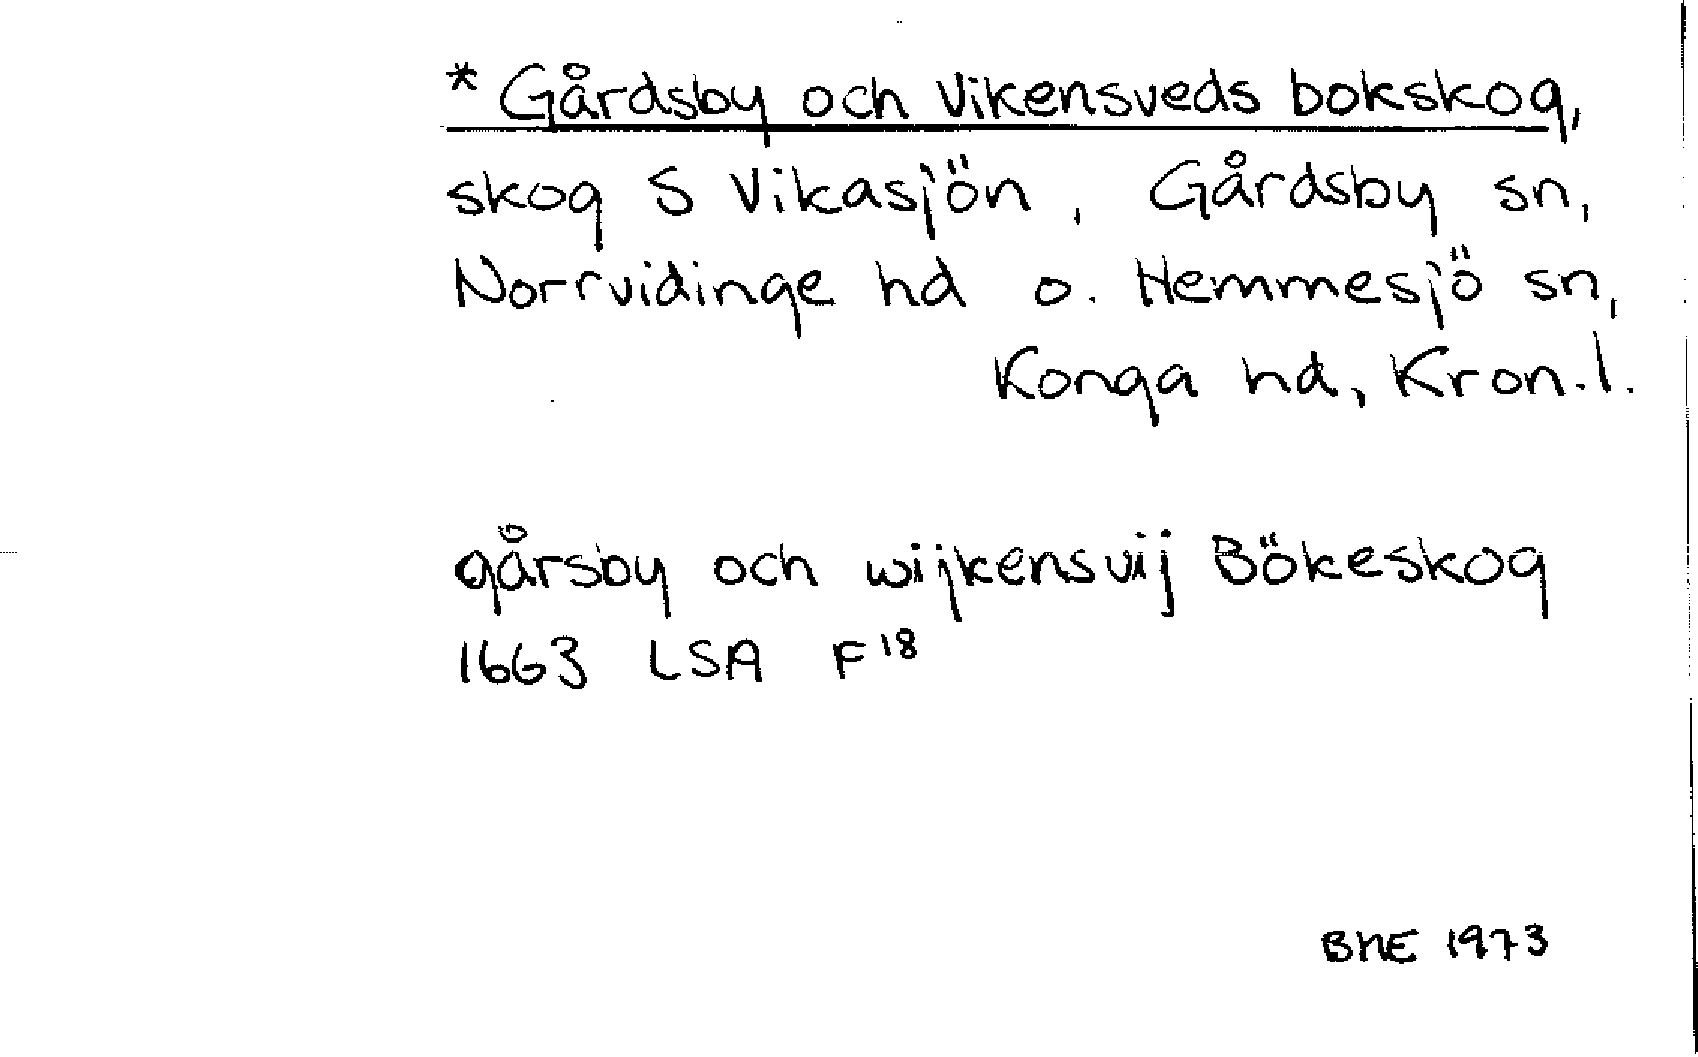 * Gårdsby och Vikensveds bokskog,
skog S Vikasjön, Gårdsby sn,
Norrvidinge hd o. Hemmesjö sn,
Konga hd, Kron.l.
gårsby och wijkensvij Bökeskog
1663 LSA F18
BHE 1973